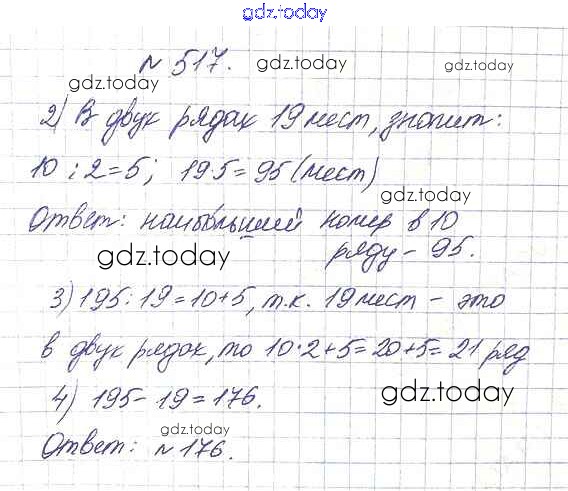 gdz.today
№ 517.
gdz.today
gdz.today
gdz.today
2) В двух рядах 19 мест, значит:
10 : 2 = 5; 19·5 = 95 (мест)
gdz.today
Ответ: наибольший номер в 10
gdz.today
ряду – 95.
3) 195 : 19 = 10 + 5, т.к. 19 мест – это
в двух рядах, то 10·2+5=20+5=21 ряд
4) 195 – 19 = 176.
gdz.today
gdz.today
Ответ: № 176.